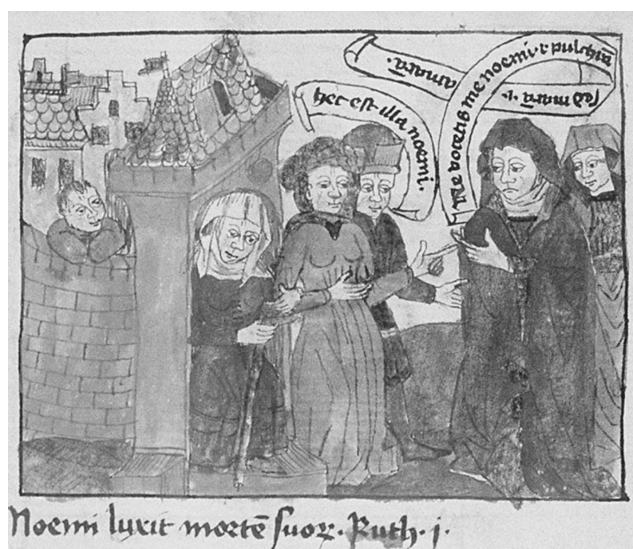 hec est illa noemi.
Ne vocetis me noemi .i. pulchrā
sed mara .i.
amarā.
Noemi luxit mortē suoꝝ. Ruth .j.